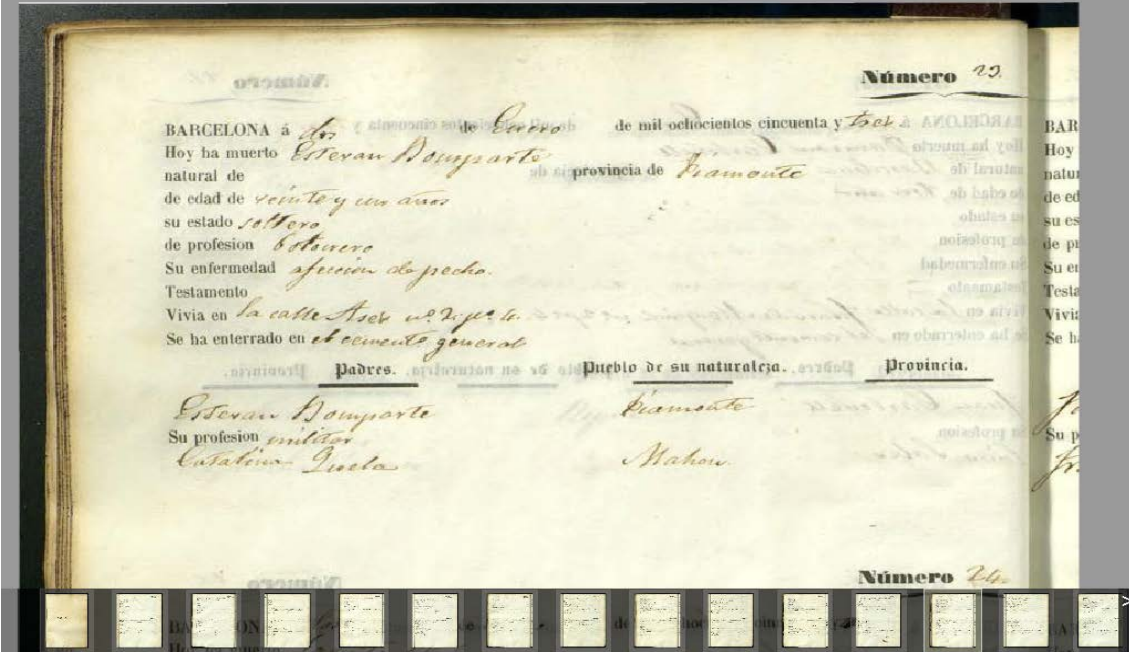 Número 23.
BARCELONA á dos de Enero de mil ochocientos cincuenta y tres
Hoy ha muerto Estevan Bomparte
natural de provincia de Piamonte
de edad de veinte y un años
su estado soltero
de profesion
Su enfermedad afeccion de pecho.
Testamento
Vivia en la calle Aseh nº 2 pº 4.
Se ha enterrado en el cementº general
Padres. Pueblo de su naturaleza. Provincia.
Estevan Bomparte Piamonte
Su profesion militar
Catalina Mahon.
Número 24.